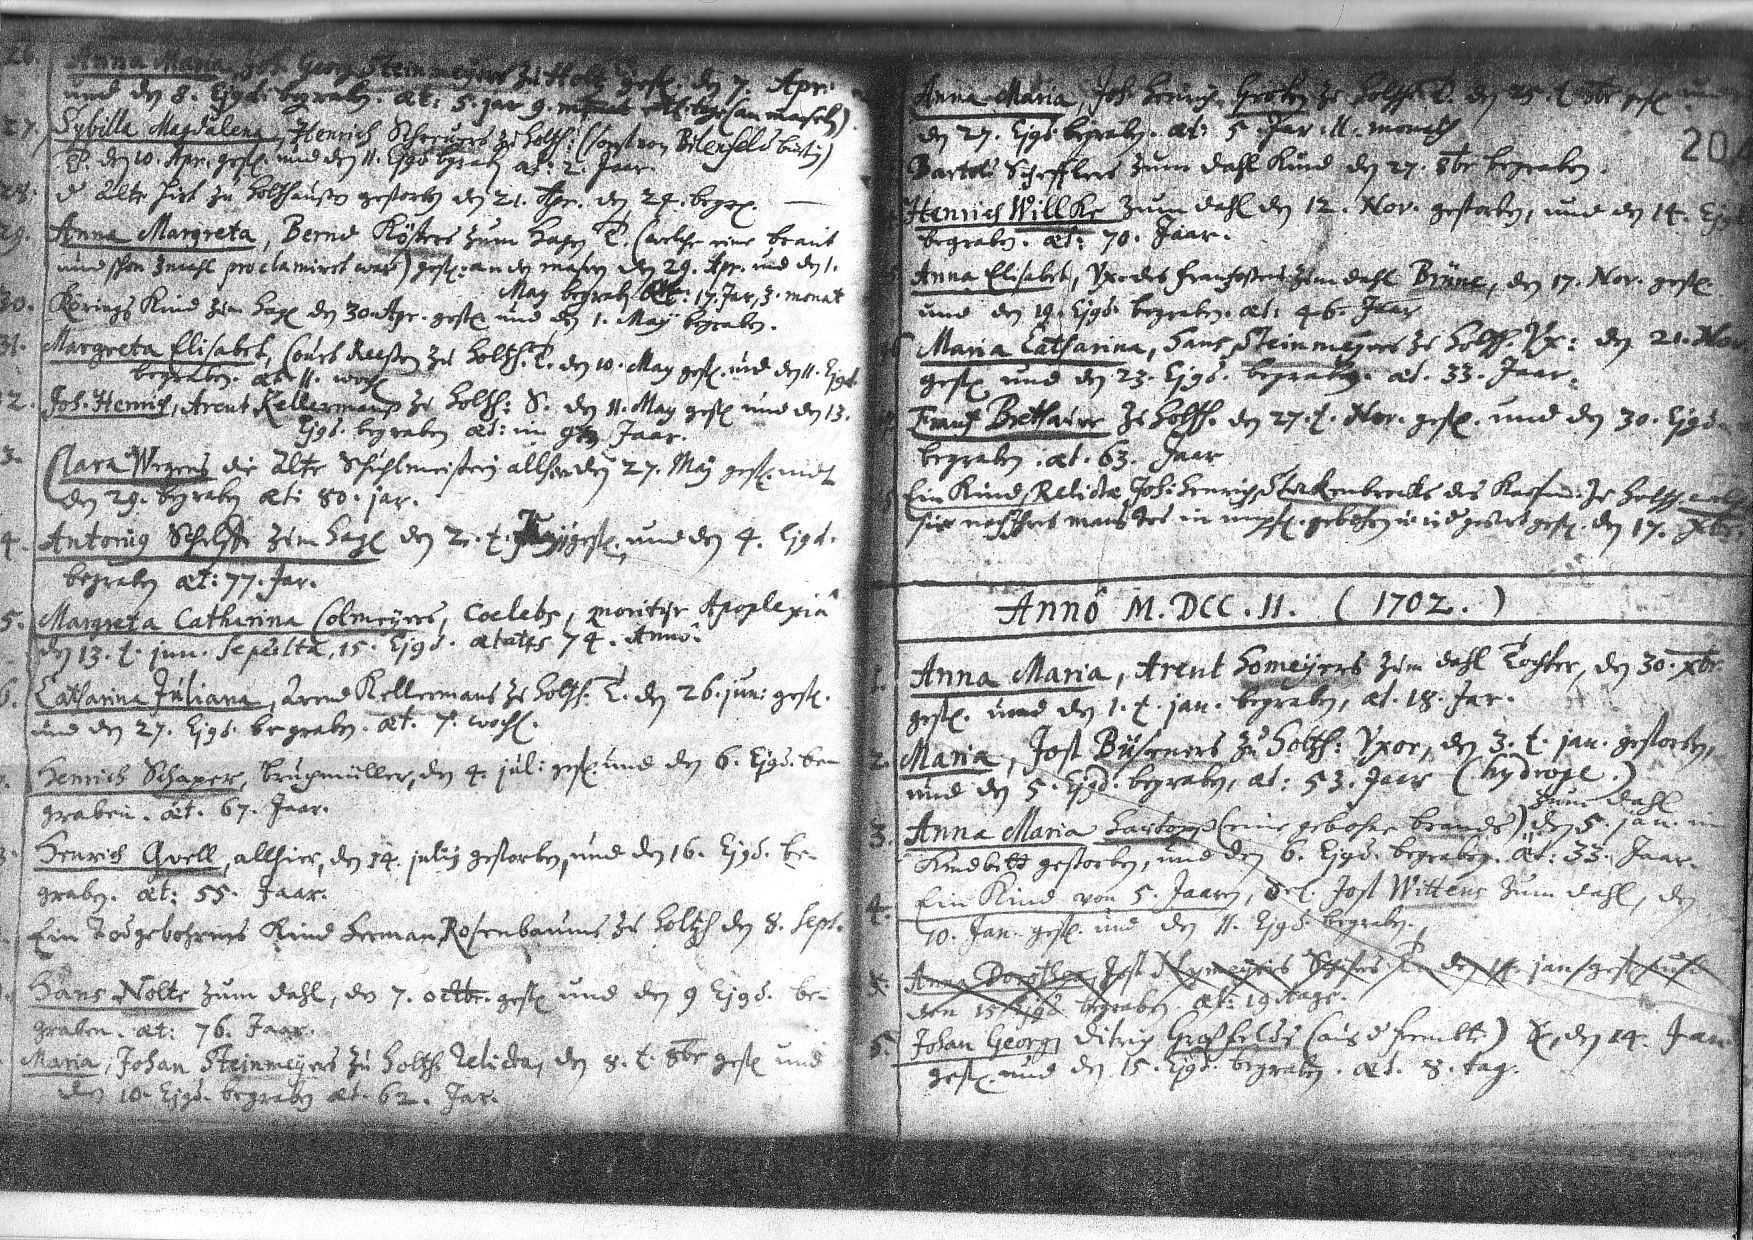 26 Anna Maria, Joh. Georg Steinmeyers zu Holtz gest. den 7. Apr.
und den 8. Ejgd. begraben. æt: 5. jar 9. (an maseln).
27. Sybilla Magdalena, Henrich zu Holtz: (sonst von Bilenfeld
T. den 10. Apr. gest. und den 11. Ejgd. begrab. æt: 2. Jaar.
28. d alte Hirt zu Holtzhausen gestorben den 21. Apr. den 24. begr.
29. Anna Margreta, Bernd Kösters zum Hagen T. (welche eine braut
und schon 2mahl proclamiret war) gest. an den masern den 29. Apr. und den 1.
May begraben Æt: 17. Jar, 3. monat
30. Körings Kind zum Hage den 30. Apr. gest. und den 1. Maÿ begraben.
31. Margreta Elisabet, Courts zu Holtzh. T. den 10. May gest. und den 11. Ejgd.
begraben. æt. 11. woch.
32. Joh. Henrich, Arent Kellermans zu Holtzh: S. den 11. May gest. und den 13.
Ejgd. begraben æt: im Jaar.
3. Clara Wegens die alte Schuhlmeisterin allhier den 27. Maÿ gest. und
den 29. begraben æt: 80. jar.
4. Antonig zum Hage den 2. t. gest. und den 4. Ejgd.
begraben æt: 77. Jar.
5. Margreta Catharina Colmeÿers, Coelebs, moritur Apoplexiâ
den 13. t. jun. sepulta, 15. Ejgd. ætatis 74. Annô.
6. Catharina Juliana, Arend Kellermans zu Holtzh. T. den 26. jun: gest.
und den 27. Ejgd. begraben. æt. 7. woch.
Henrich Schaper, Brugmüller, den 4. jul: gest. und den 6. Ejgd. be-
graben. æt. 67. Jaar.
Henrich Quell, allhier, den 14. julij gestorben, und den 16. Ejgd. be-
graben. æt: 55. Jaar.
Ein Todgebohrenes Kind Herman Rosenbaums zu Holtzh den 8. Sept.
Hans Nolte zum dahl, den 7. octbr. gest. und den 9 Ejgd. be-
graben. æt: 76. Jaar.
Maria, Johan Steinmeyers zu Holtzh. Relicta, den 8. t. 8br gest. und
den 10. Ejgd. begraben æt. 62. Jar.
Anna Maria, Joh. Henrich zu Holtzh. T. den 25. t. 8br gest. und
den 27. Ejgd. begraben. æt: 5. Jar. 11. monath
204
Bartold Schefflers zum dahl Kind den 27. 8br begraben.
Henrich Willke zum dahl den 12. Nov. gestorben, und den 14. Ejgd.
begraben. æt: 70. Jaar.
Anna Elisabet, Yxor des zum dahl Brüne, den 17. Nov. gest.
und den 19. Ejgd. begraben. æt: 46. Jaar
Maria Catharina, Hans Steinmeyers zu Holtzh. Yx: den 21. Nov.
gest. und den 23. Ejgd. begraben. æt. 33. Jaar.
zu Holtzh. den 27. t. Nov. gest. und den 30. Ejgd.
begraben. æt. 63. Jaar
Ein Kind Relictæ Joh: Henrich Starkenbrocks des zu Holtzh.
gest. den 17. xbr.
Annô M. DCC. II. ( 1702. )
1. Anna Maria, Arent Homeÿers zum dahl Tochter, den 30. xbr.
gest. und den 1. t. jan. begraben, æt. 18. Jar.
2. Maria, Jost zu Holtzh: Yxor, den 3. t. jan. gestorben,
und den 5. Ejgd. begraben, æt: 53. Jaar (hydrope.)
zum dahl
3. Anna Maria (eine gebohrne brands) den 5. jan. im
Kindbett gestorben, und den 6. Ejgd. begraben. æt: 33. Jaar.
4. Ein Kind von 5. Jaaren, Jost Wittens zum dahl, den
10. Jan. gest. und den 11. Ejgd. begraben.
Anna Dorothea, Jost T. den 14. jan. gest. und
den 15 Ejgd begraben. æt: 19. tage.
5. Johan Georg, Ditrich (aus d fremde) den 14. Jan
gest. und den 15. Ejgd. begraben. æt. 8. tag.